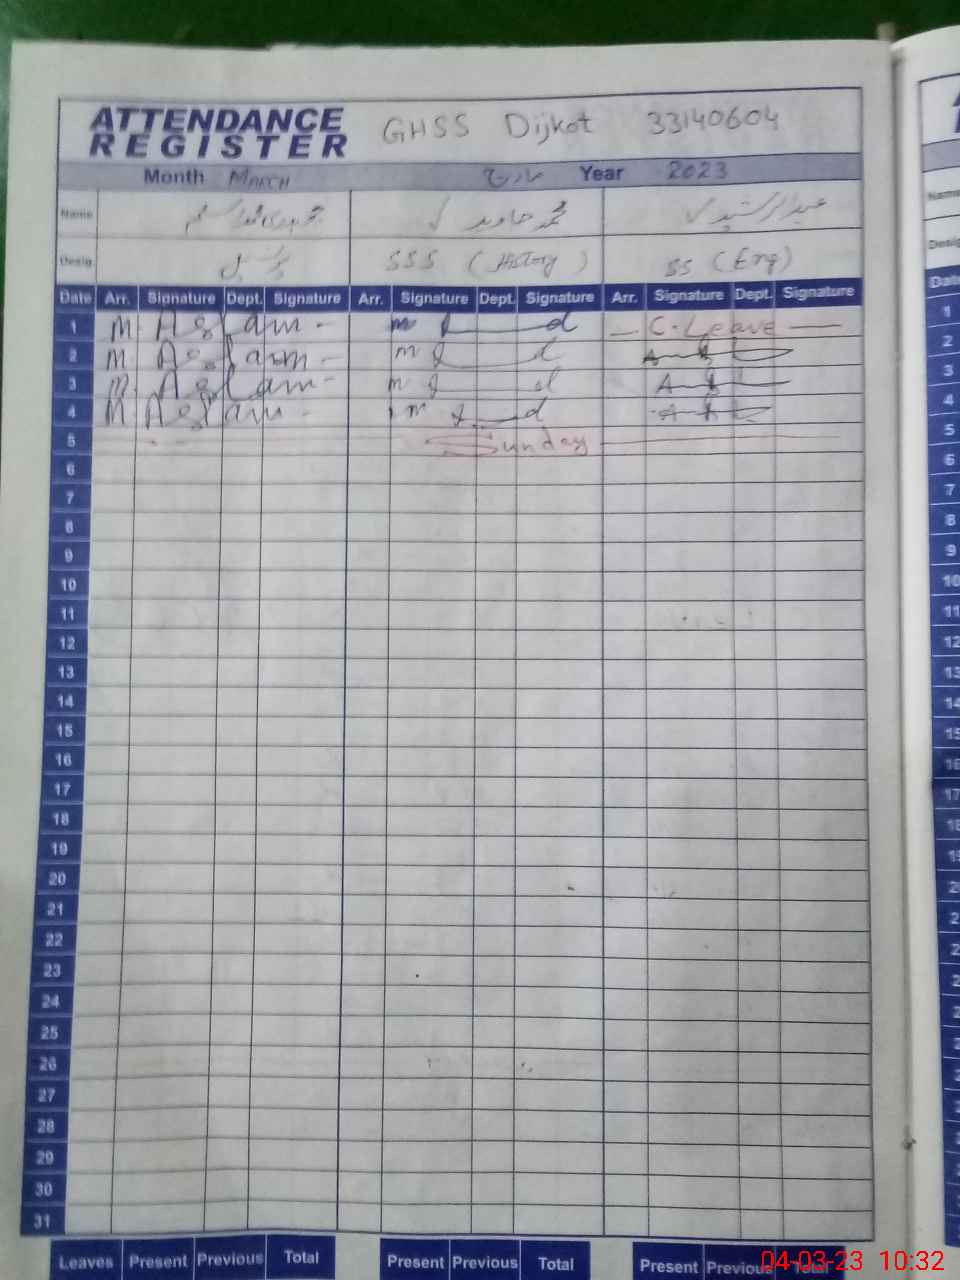 ATTENDANCE REGISTER GHSS Dijkot 33140604
Month MARCH مارچ Year 2023
Name محمد جاوید عبدالرشید
Desig پرنسپل SSS (History) SS (Eng)
Date Arr. Signature Dept. Signature Arr. Signature Dept. Signature Arr. Signature Dept. Signature
1 M Aslam C. Leave
2 M Aslam
3 M Aslam
4 M Aslam
5 Sunday
6
7
8
9
10
11
12
13
14
15
16
17
18
19
20
21
22
23
24
25
26
27
28
29
30
31
Leaves Present Previous Total Present Previous Total Present Previous Total
04-03-23 10:32